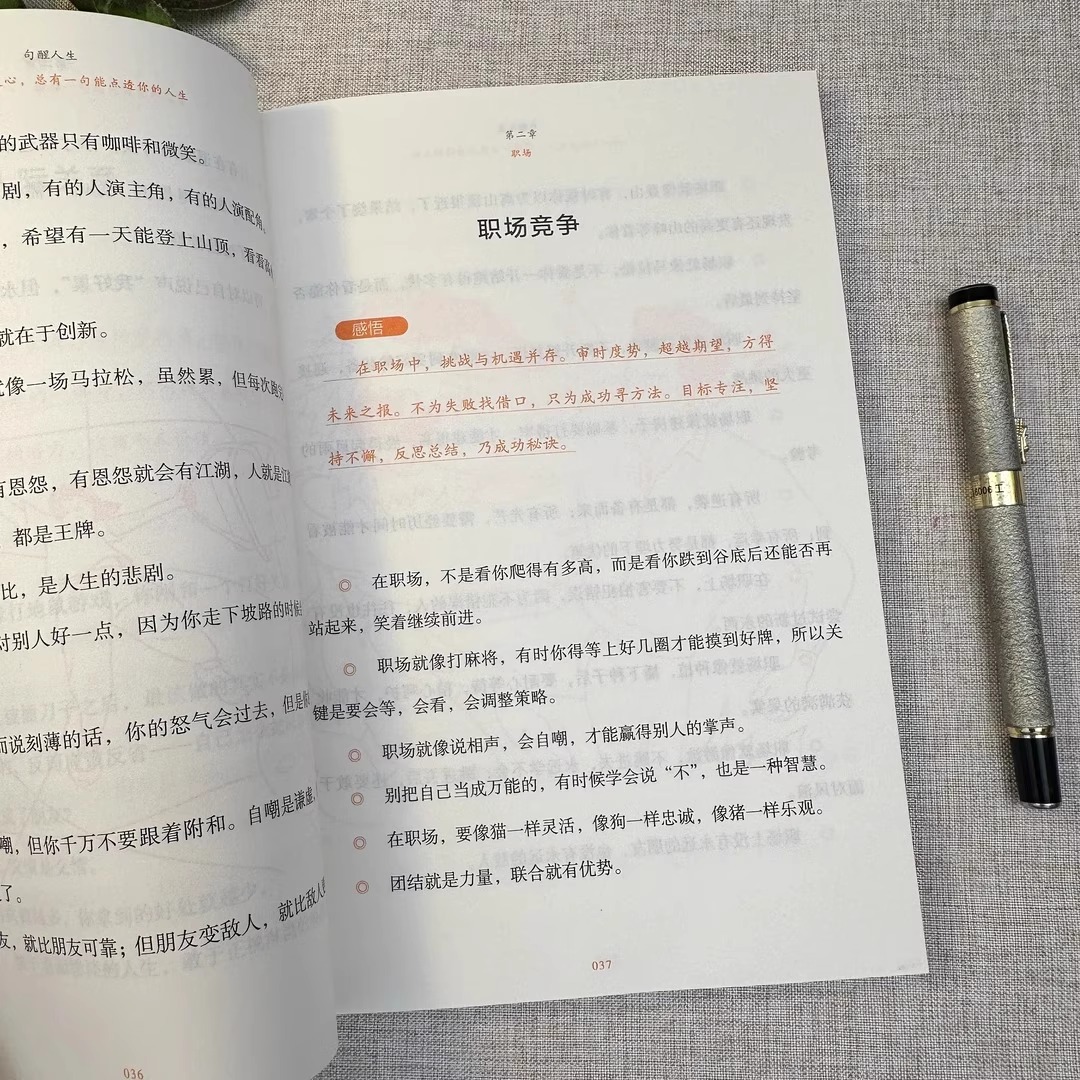 句醒人生
心，总有一句能点透你的人生
的武器只有咖啡和微笑。
剧，有的人演主角，有的人演配角。
，希望有一天能登上山顶，看看
就在于创新。
像一场马拉松，虽然累，但每次跑完
有恩怨，有恩怨就会有江湖，人就是江
都是王牌。
比，是人生的悲剧。
对别人好一点，因为你走下坡路的时候
而说刻薄的话，你的怒气会过去，但是你
嘲，但你千万不要跟着附和。自嘲是谦虚
了。
友，就比朋友可靠；但朋友变敌人，就比敌人
036
第二章
职场
职场竞争
感悟
在职场中，挑战与机遇并存。审时度势，超越期望，方得
未来之报。不为失败找借口，只为成功寻方法。目标专注，坚
持不懈，反思总结，乃成功秘诀。
在职场，不是看你爬得有多高，而是看你跌到谷底后还能否再
站起来，笑着继续前进。
职场就像打麻将，有时你得等上好几圈才能摸到好牌，所以关
键是要会等，会看，会调整策略。
职场就像说相声，会自嘲，才能赢得别人的掌声。
别把自己当成万能的，有时候学会说“不”，也是一种智慧。
在职场，要像猫一样灵活，像狗一样忠诚，像猪一样乐观。
团结就是力量，联合就有优势。
037